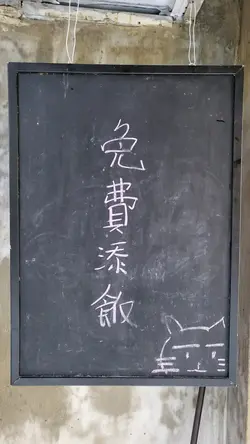 免費添飯